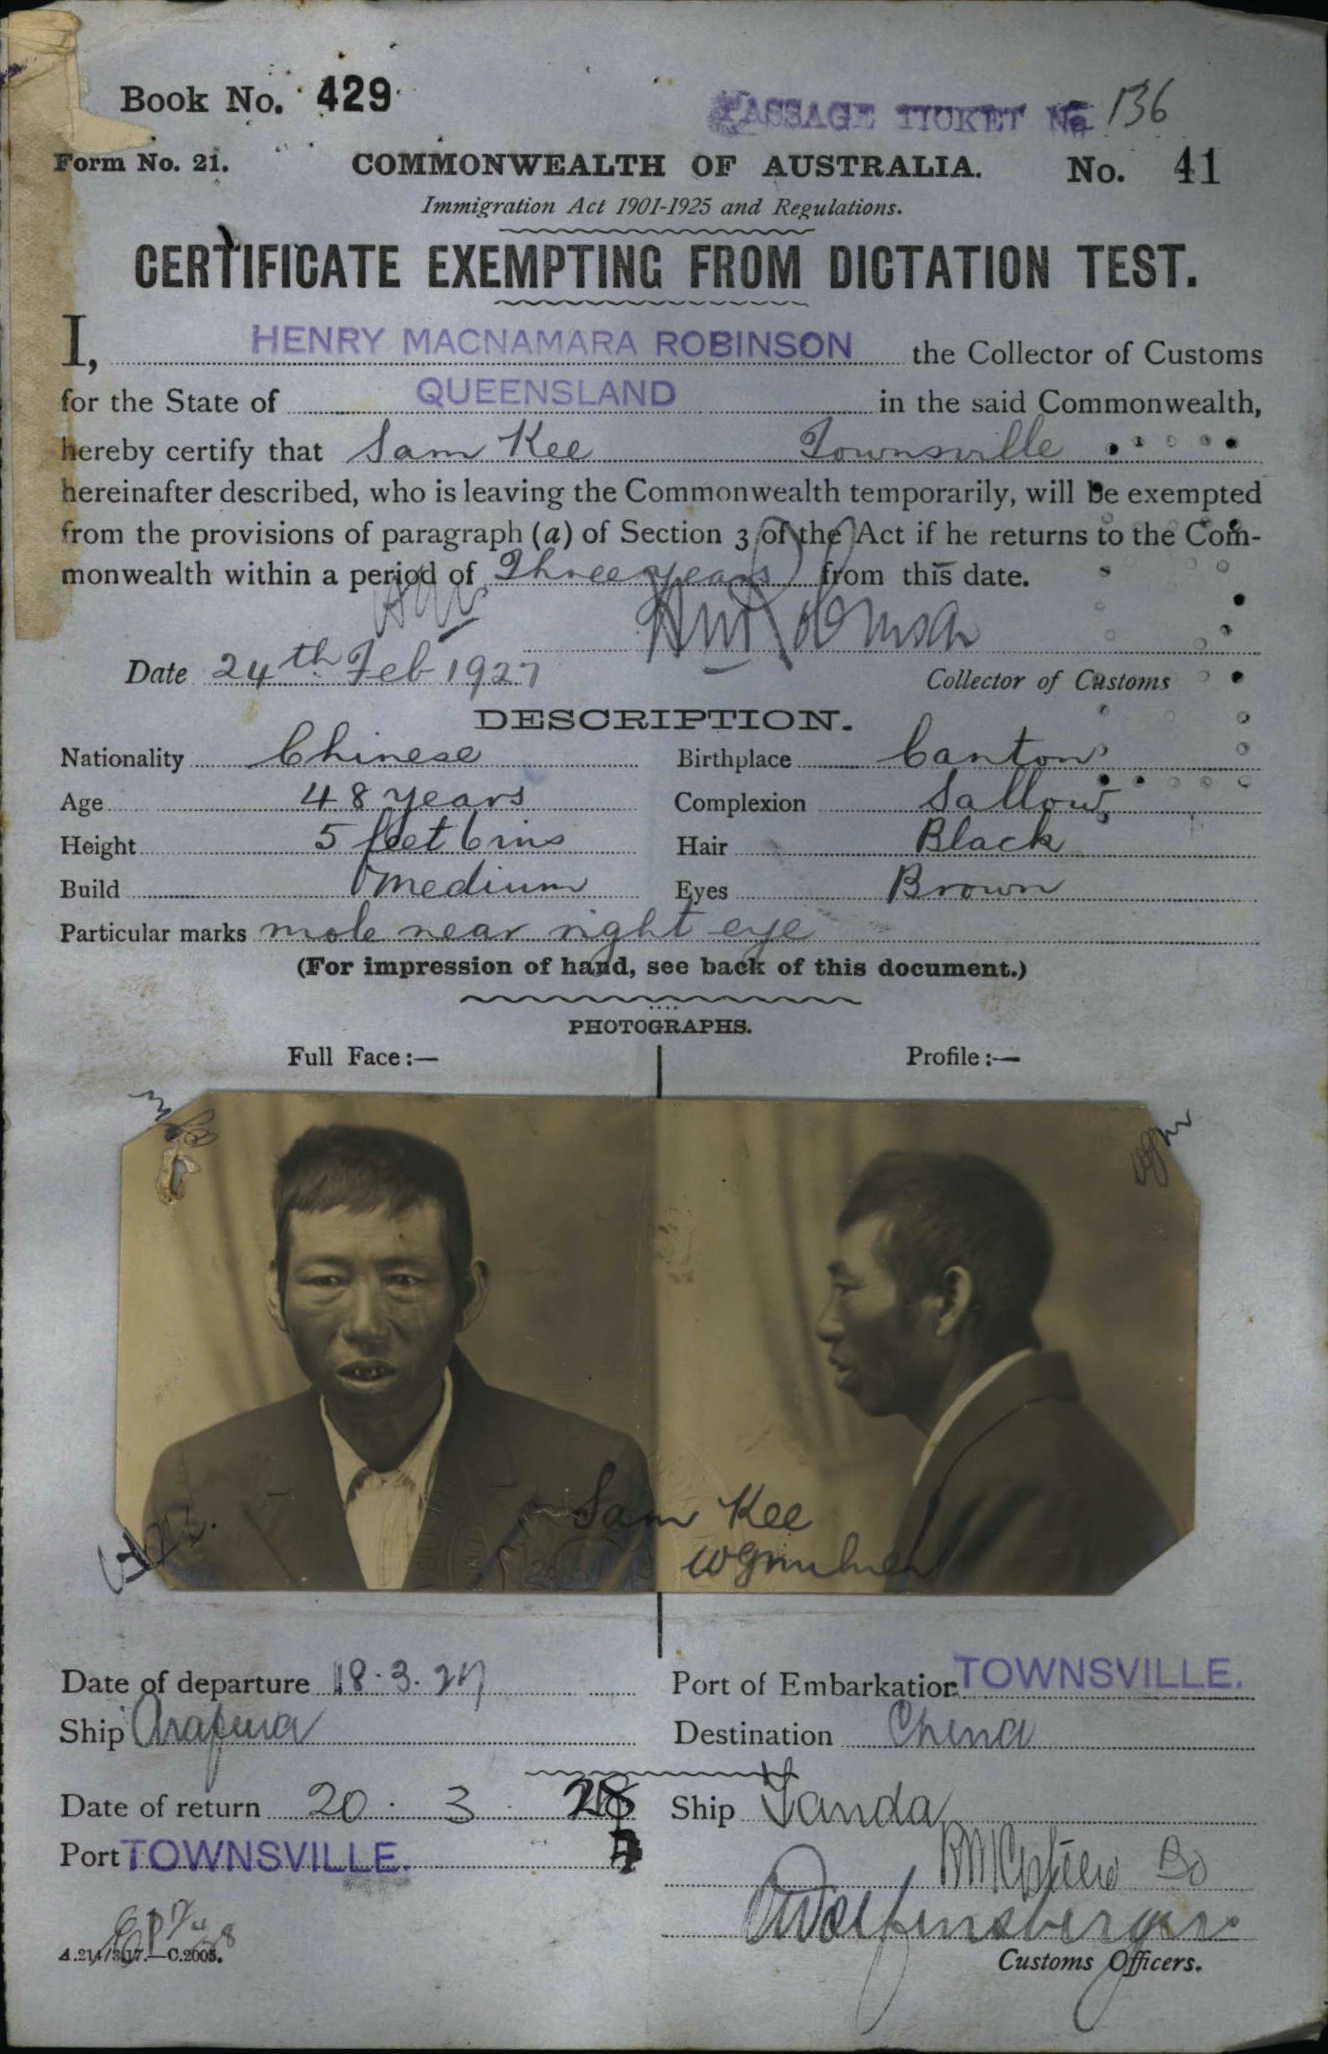 Book No. 429
PASSAGE TICKET No. 136
Form No. 21. COMMONWEALTH OF AUSTRALIA. No. 41
Immigration Act 1901-1925 and Regulations.
CERTIFICATE EXEMPTING FROM DICTATION TEST.
I, HENRY MACNAMARA ROBINSON the Collector of Customs
for the State of QUEENSLAND in the said Commonwealth,
hereby certify that Sam Kee Townsville
hereinafter described, who is leaving the Commonwealth temporarily, will be exempted
from the provisions of paragraph (a) of Section 3 of the Act if he returns to the Com-
monwealth within a period of Three years from this date.
HM Robinson
Date 24th Feb 1927 Collector of Customs
DESCRIPTION.
Nationality Chinese Birthplace Canton
Age 48 years Complexion Sallow
Height 5 feet 6 ins Hair Black
Build Medium Eyes Brown
Particular marks mole near right eye
(For impression of hand, see back of this document.)
PHOTOGRAPHS.
Full Face:— Profile:—
Sam Kee
Date of departure 18.3.27 Port of Embarkation TOWNSVILLE.
Ship Arafura Destination China
Date of return 20. 3. 28 Ship Tanda
Port TOWNSVILLE.
Customs Officers.